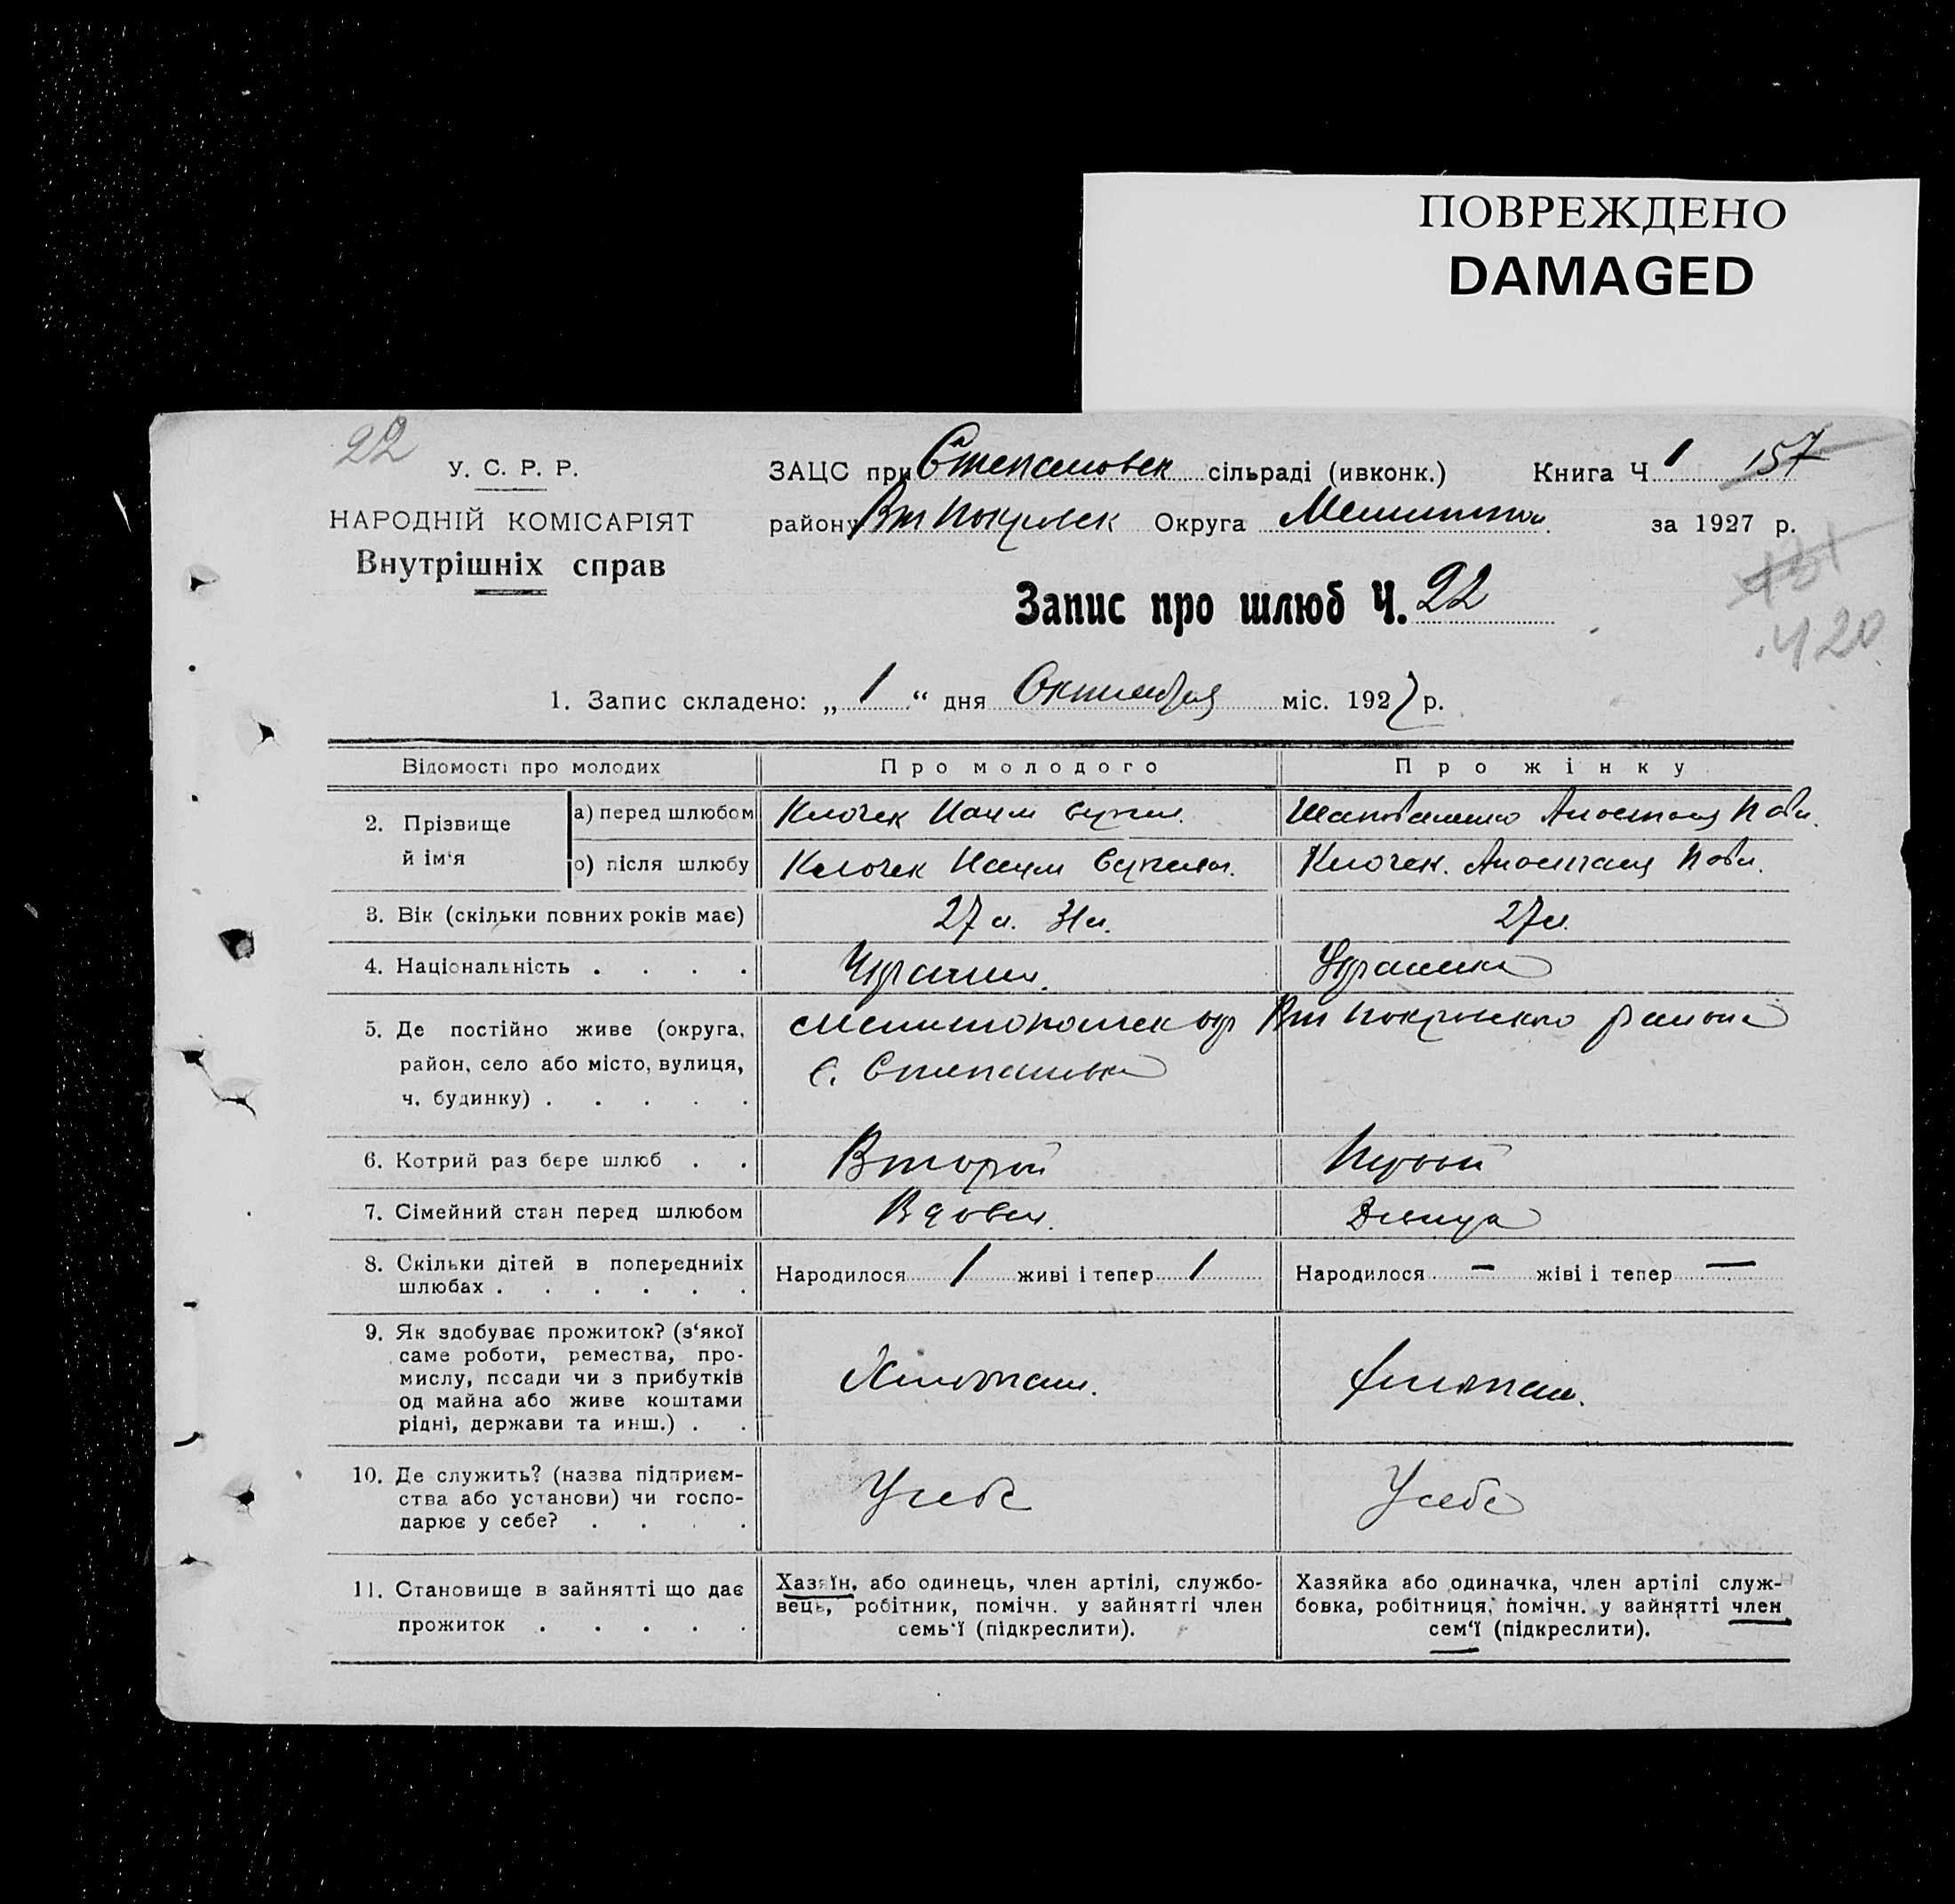 ПОВРЕЖДЕНО
DAMAGED
22
У. С. Р. Р.
НАРОДНІЙ КОМІСАРІЯТ
Внутрішніх справ
ЗАЦС при Степановск сільраді (ивконк.) Книга Ч 1 157
району Вт Покровск Округа за 1927 р.
Запис про шлюб Ч. 22
420
1. Запис складено: „ 1 “ дня Октября міс. 1927 р.
Відомості про молодих Про молодого Про жінку
2. Прізвище й ім‘я
а) перед шлюбом Клочек Наум Анастасия
о) після шлюбу Клочек Наум Клочек. Анастасия
3. Вік (скільки повних років має) 27 л. 27 л.
4. Національність . . . . Украинка
5. Де постійно живе (округа, Мелитопольск окр Вт Покровского района
район, село або місто, вулиця, с. Степановка
ч. будинку) . . . . .
6. Котрий раз бере шлюб . . Второй Первый
7. Сімейний стан перед шлюбом Вдовец. Девица
8. Скільки дітей в попередниіх Народилося 1 живі і тепер 1 Народилося — жіві і тепер —
шлюбах . . . . . .
9. Як здобуває прожиток? (з‘якої
саме роботи, ремества, про-
мислу, посади чи з прибутків Хлебопаш. Хлебопаш.
од майна або живе коштами
рідні, держави та инш.) . .
10. Де служить? (назва підприєм-
ства або установи) чи госпо- У себе У себе
дарює у себе? . . . .
11. Становище в зайнятті що дає
прожиток . . . . .
Хазяїн, або одинець, член артілі, службо-
вець, робітник, помічн. у зайнятті член
семь‘ї (підкреслити).
Хазяйка або одиначка, член артілі служ-
бовка, робітниця, помічн. у зайнятті член
сем‘ї (підкреслити).